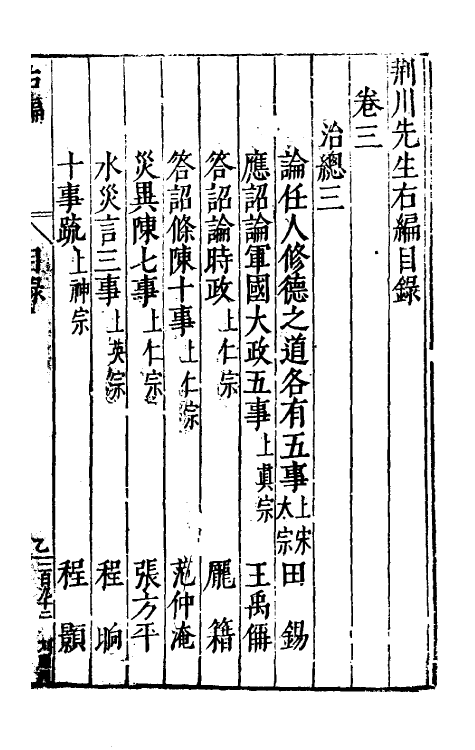 荆川先生右編目錄
卷三
治總三
論任人修德之道各有五事上宋太宗 田錫
應詔論軍國大政五事上真宗 王禹偁
答詔論時政上仁宗 龐籍
答詔條陳十事上仁宗 范仲淹
災異陳七事上仁宗 張方平
水災言三事上英宗 程晌
十事疏上神宗 程顥
右編 目錄